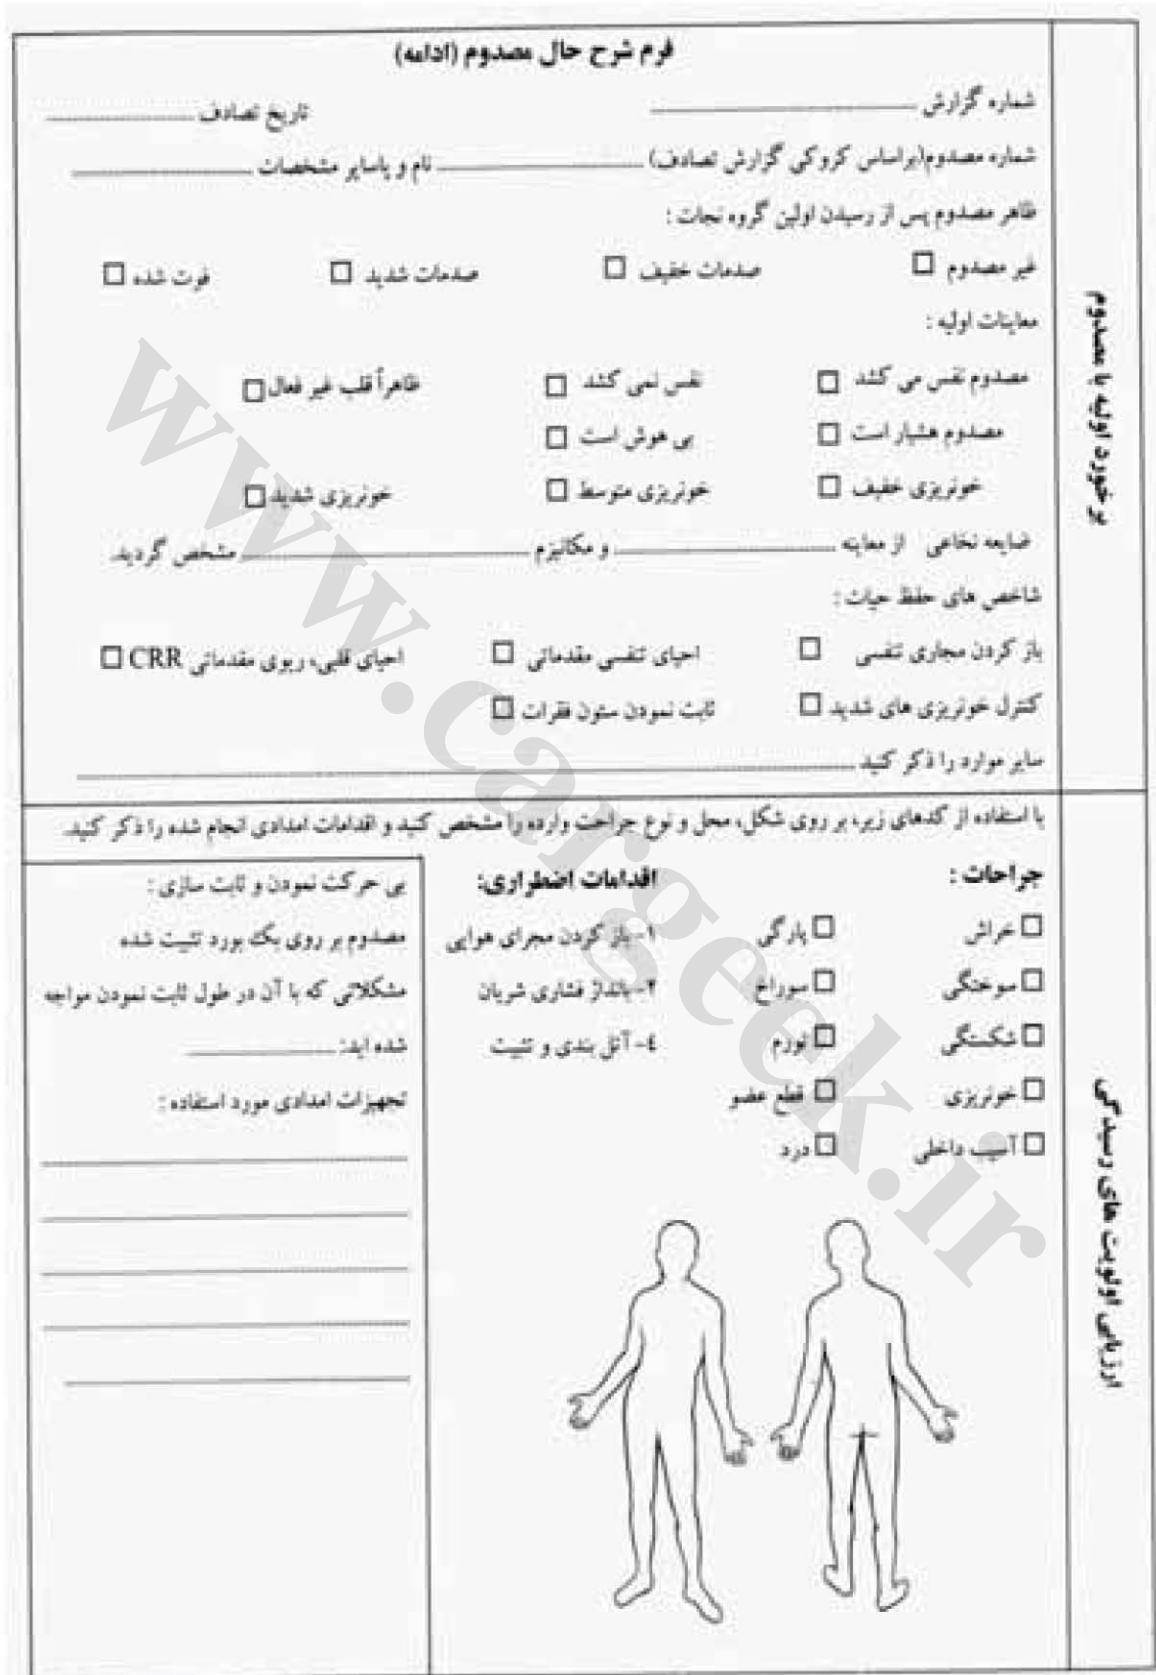 فرم شرح حال مصدوم (ادامه)
شماره گزارش
تاریخ تصادف
شماره مصدوم(براساس کروکی گزارش تصادف) نام و یاسایر مشخصات
ظاهر مصدوم پس از رسیدن اولین گروه نجات :
غیر مصدوم □ صدمات خفیف □ صدمات شدید □ فوت شده □
معاینات اولیه :
مصدوم نفس می کشد □ نفس نمی کشد □ ظاهراً قلب غیر فعال □
مصدوم هشیار است □ بی هوش است □
خونریزی خفیف □ خونریزی متوسط □ خونریزی شدید □
ضایعه نخاعی از معاینه و مکانیزم مشخص گردید.
شاخص های حفظ حیات :
باز کردن مجاری تنفسی □ احیای تنفسی مقدماتی □ احیای قلبی، ریوی مقدماتی CRR □
کنترل خونریزی های شدید □ ثابت نمودن ستون فقرات □
سایر موارد را ذکر کنید
برخورد اولیه با مصدوم
با استفاده از کدهای زیر، بر روی شکل، محل و نوع جراحت وارده را مشخص کنید و اقدامات امدادی انجام شده را ذکر کنید.
جراحات :
□ خراش □ پارگی
□ سوختگی □ سوراخ
□ شکستگی □ تورم
□ خونریزی □ قطع عضو
□ آسیب داخلی □ درد
اقدامات اضطراری:
۱- باز کردن مجرای هوایی
۲- بانداژ فشاری شریان
٤- آتل بندی و تثبیت
بی حرکت نمودن و ثابت سازی :
مصدوم بر روی بک بورد تثبیت شده
مشکلاتی که با آن در طول ثابت نمودن مواجه
شده اید:
تجهیزات امدادی مورد استفاده :
ارزیابی اولویت های رسیدگی
www.cargeek.ir